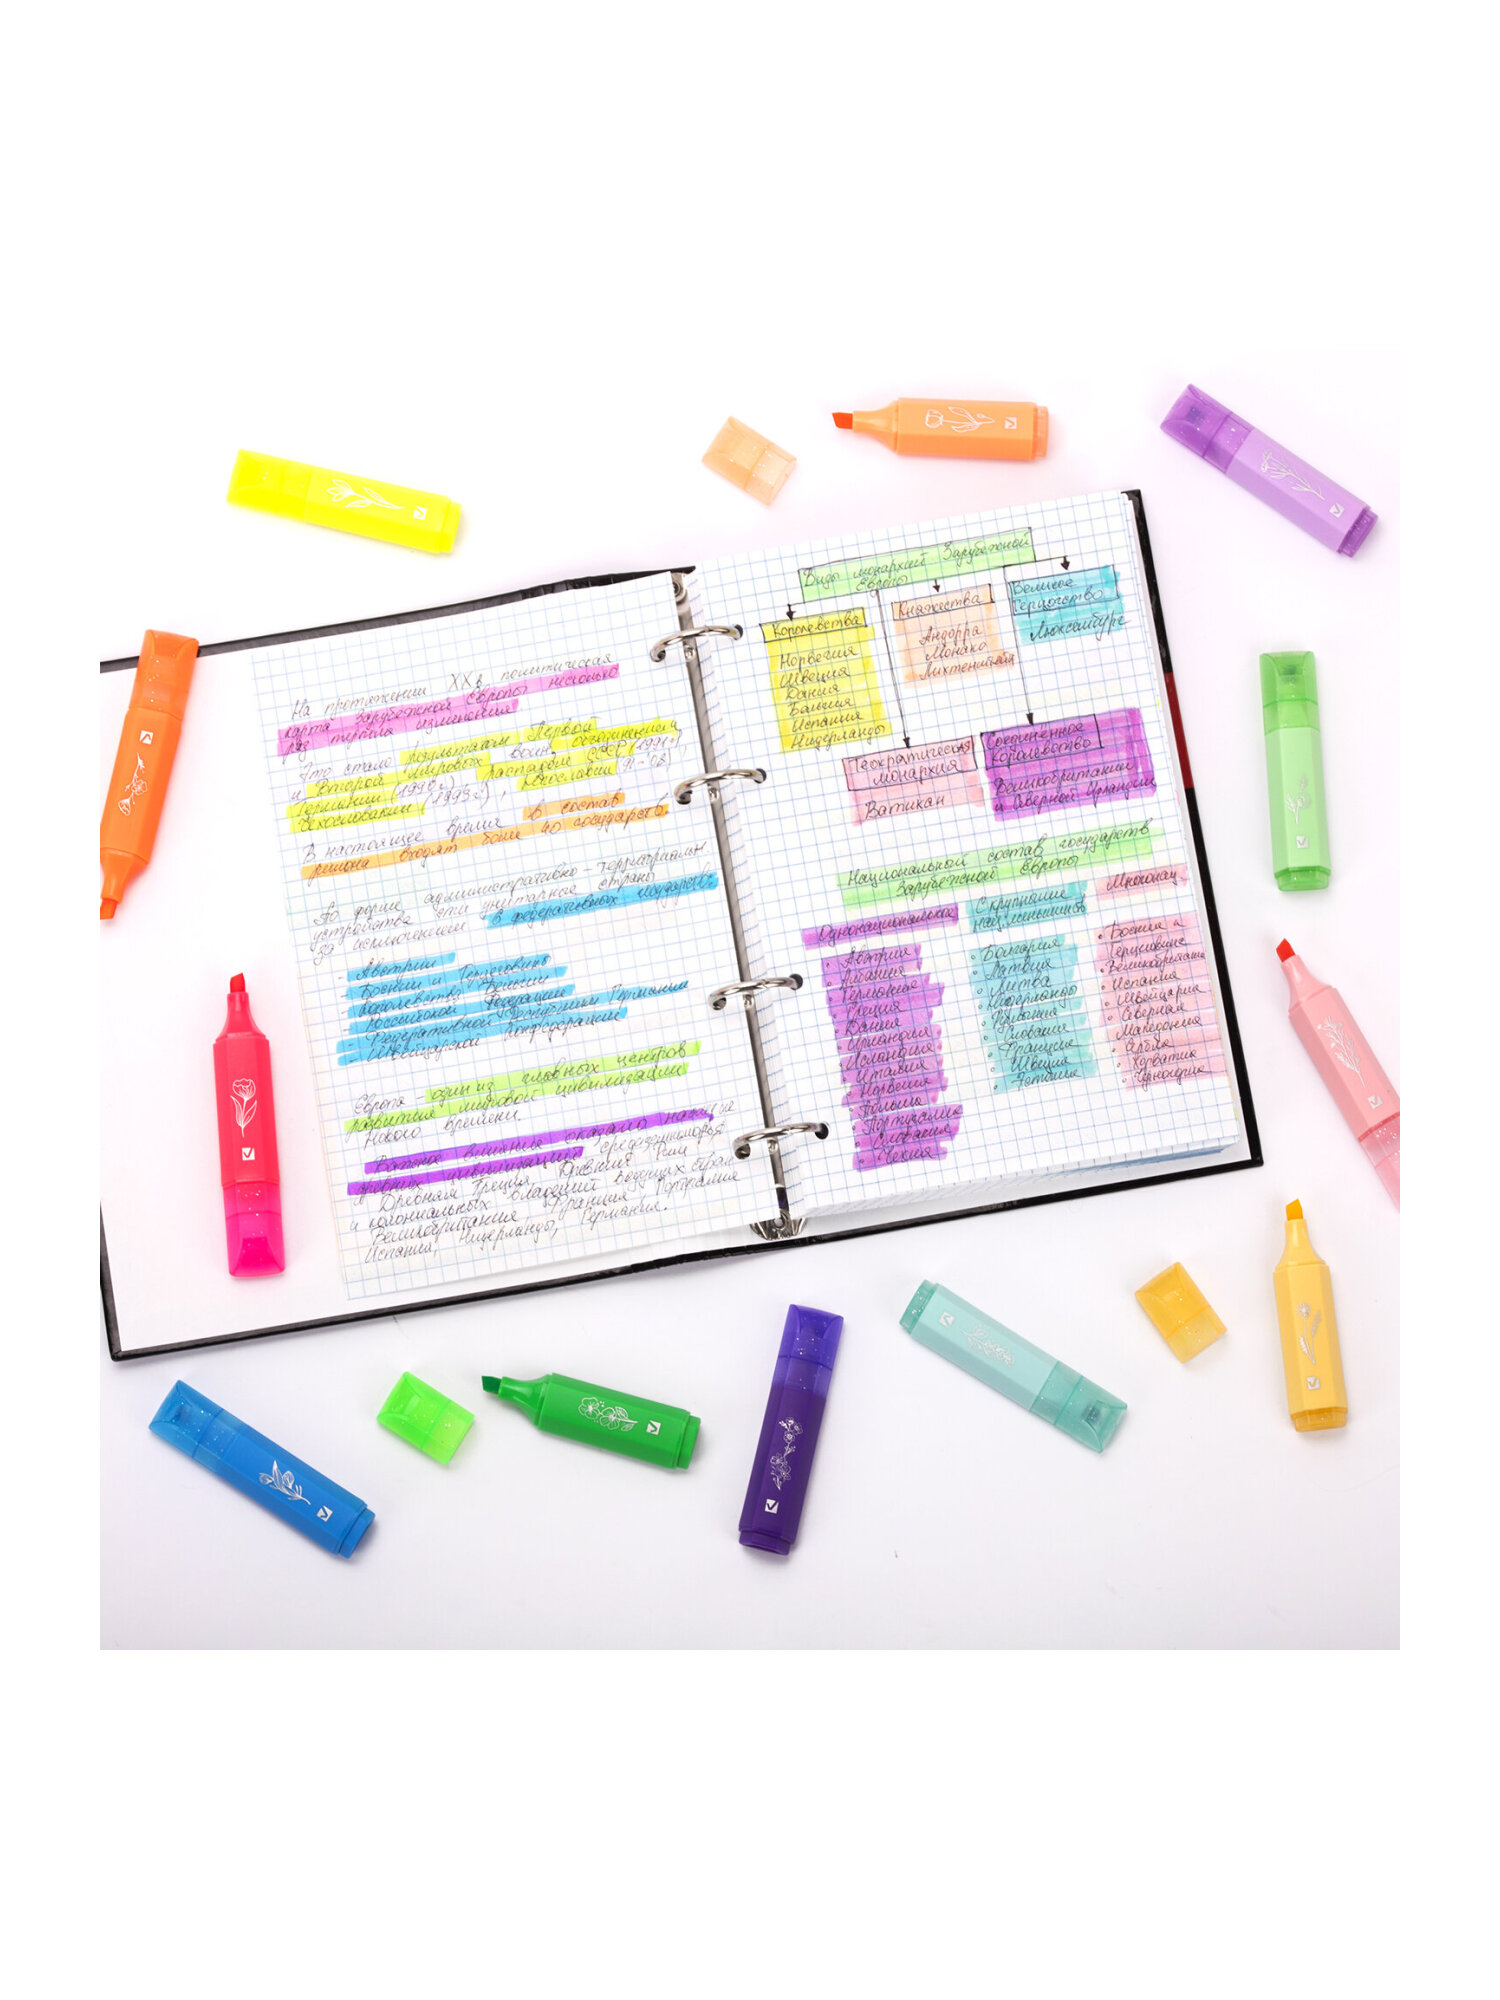 На протяжении XX в. политическая
карта Зарубежной Европы несколько
раз терпела изменения
Это стало результатом Первой
и Второй Мировых войн, объединением
Германии (1990 г.), распадов СССР (1991 г.),
Чехословакии (1993 г.), Югославии (91-08)
В настоящее время в состав
региона входят более 40 государств.
По форме административно-территориальн.
устройства эти унитарные страны
за исключением 6 федеративных государств:
- Австрии
- Боснии и Герцеговины
- Королевства Бельгии
- Российской Федерации
- Федеративной Республики Германии
- Швейцарской Конфедерации
Европа - один из главных центров
развития мировой цивилизации
Нового времени.
Важное влияние оказало наследие
древних цивилизаций средиземноморья
Древняя Греция, Древний Рим
и колониальных владений ведущих стран
Великобритания, Франция, Португалия
Испания, Нидерланды, Германия.
Виды монархий Зарубежной
Европы
Королевства
Норвегия
Швеция
Дания
Бельгия
Испания
Нидерланды
Княжества
Андорра
Монако
Лихтенштейн
Великое
Герцогство
Люксембург
Теократическая
монархия
Ватикан
Соединенное
Королевство
Великобритании
и Северной Ирландии
Национальный состав государств
Зарубежной Европы
Однонациональные
• Австрия
• Албания
• Германия
• Греция
• Дания
• Ирландия
• Исландия
• Италия
• Норвегия
• Польша
• Португалия
• Словения
• Чехия
С крупными
нац. меньшинств
• Болгария
• Латвия
• Литва
• Нидерланды
• Румыния
• Словакия
• Франция
• Швеция
• Эстония
Многонац.
• Босния и
Герцеговина
• Великобритания
• Испания
• Швейцария
• Северная
Македония
• Сербия
• Хорватия
• Черногория